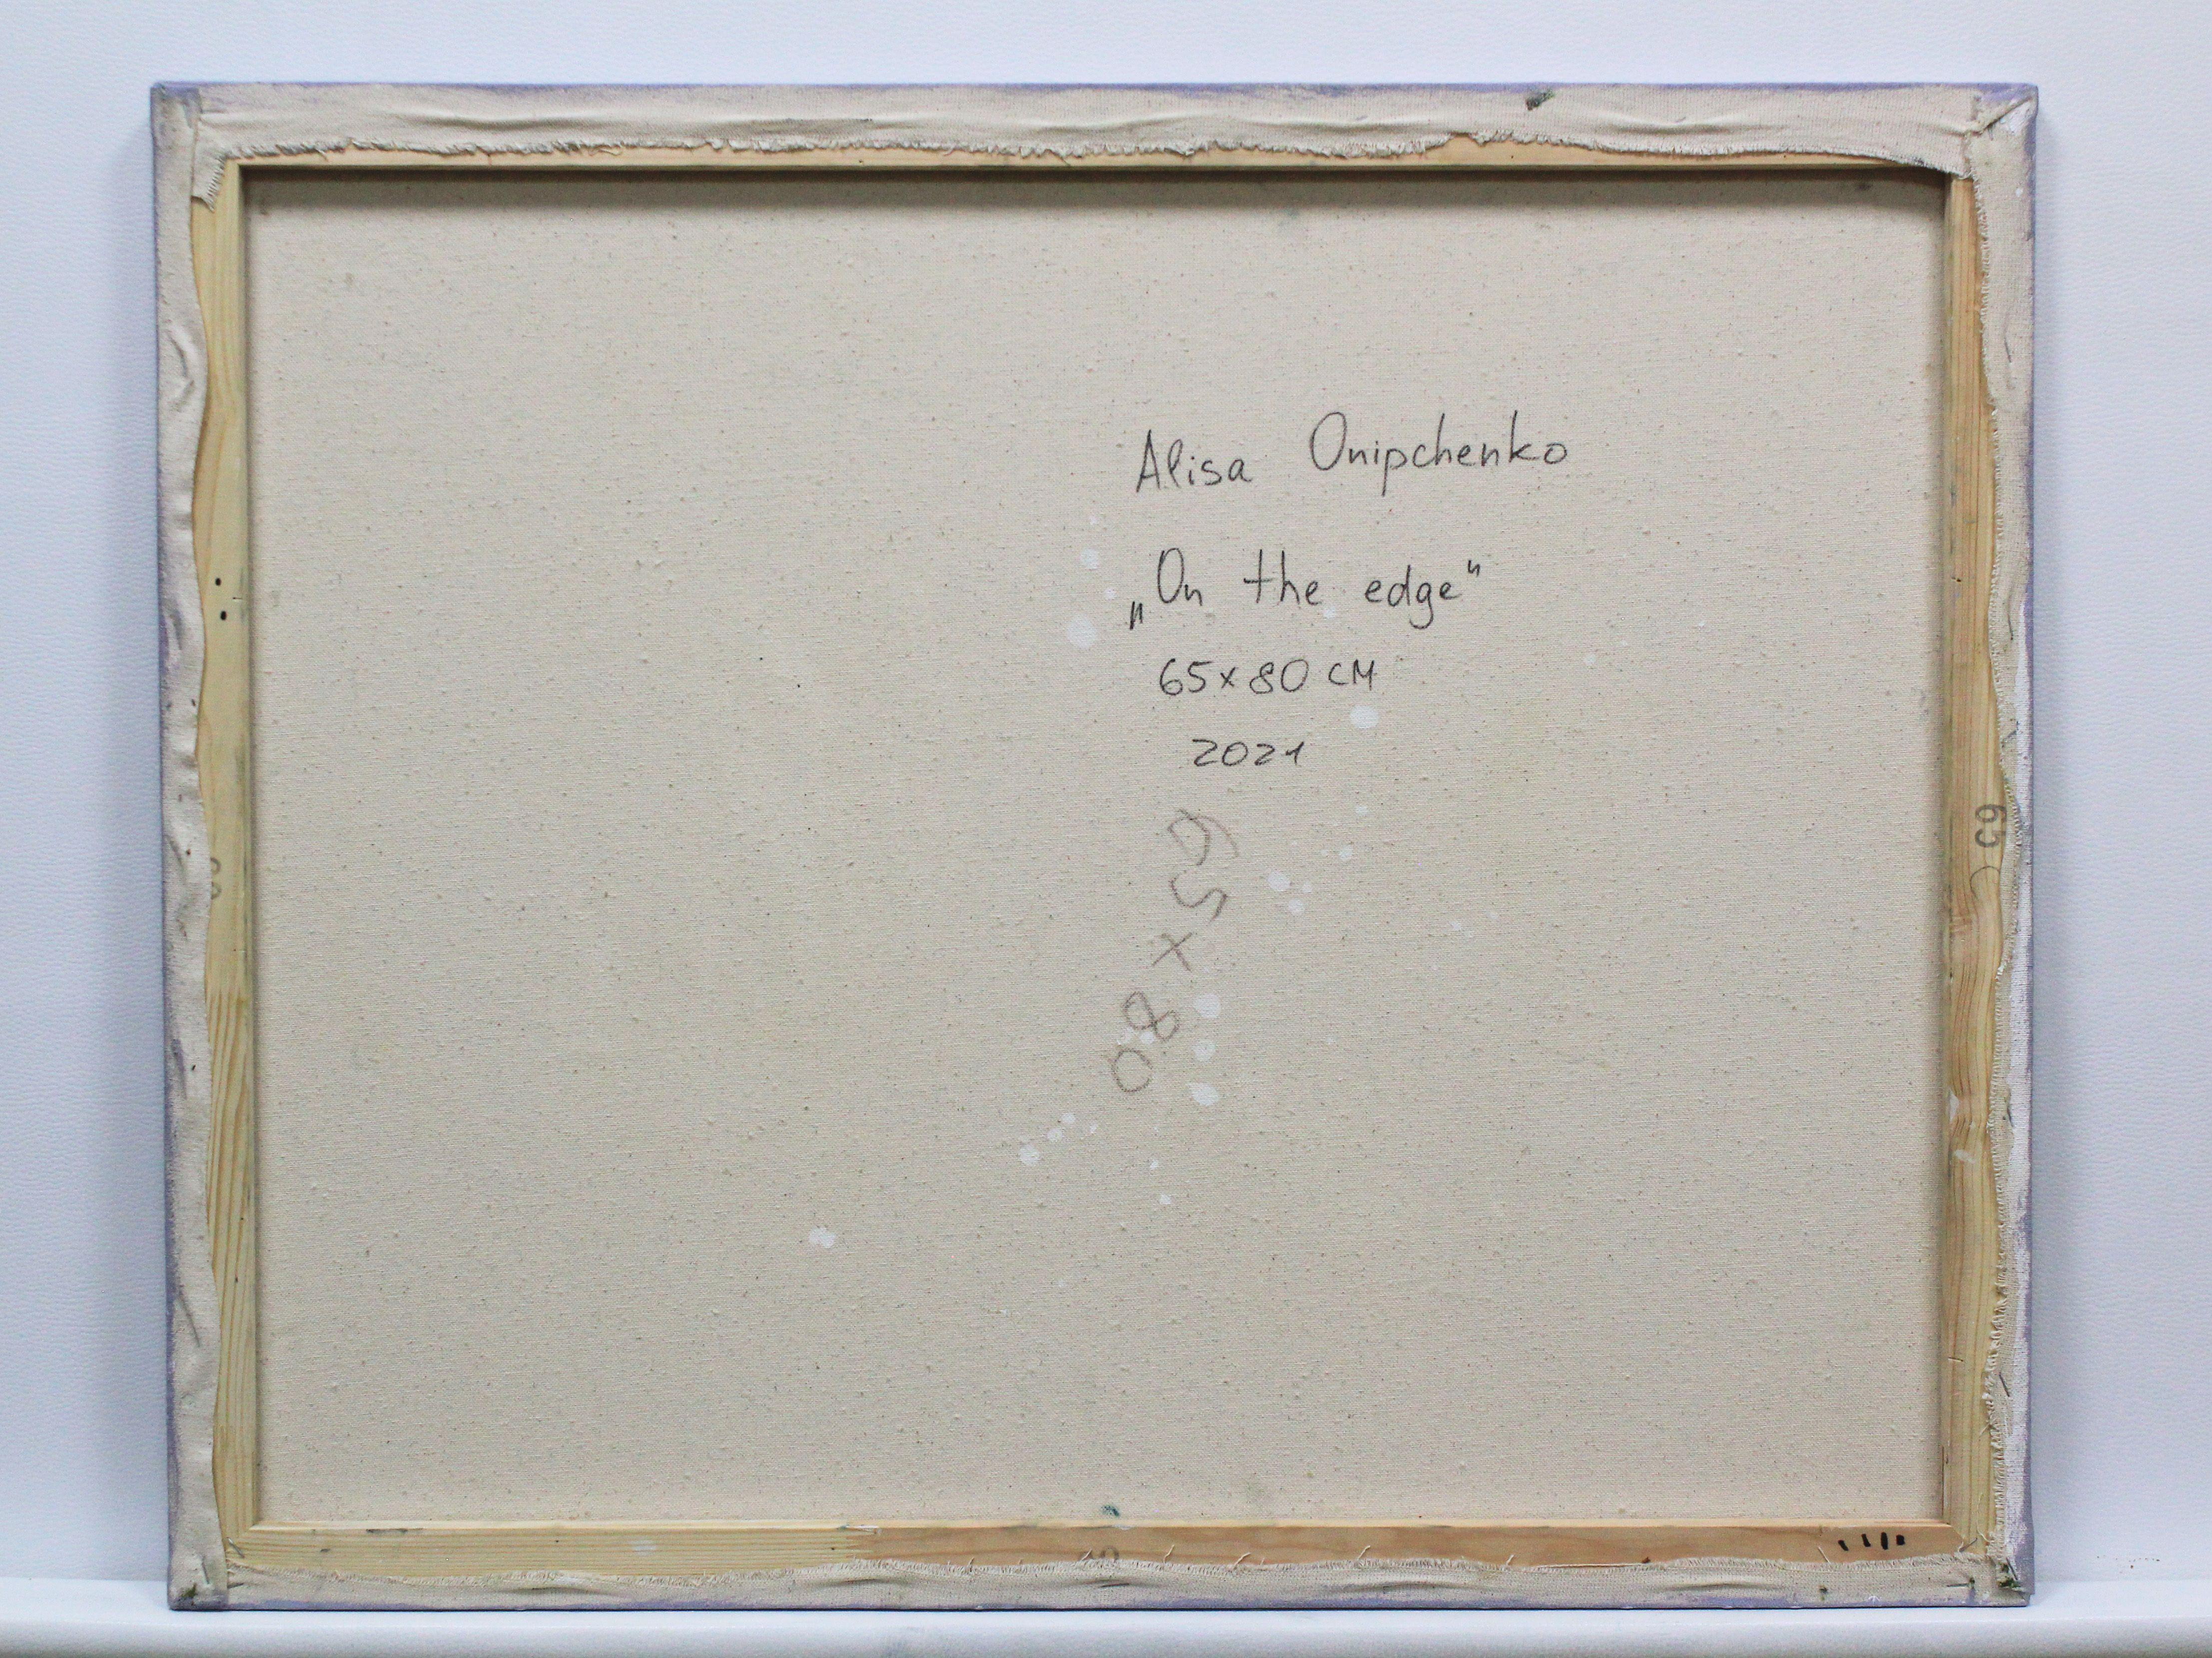 Alisa Onipchenko
„On the edge“
65x80 CM
2021
65 x 80
65